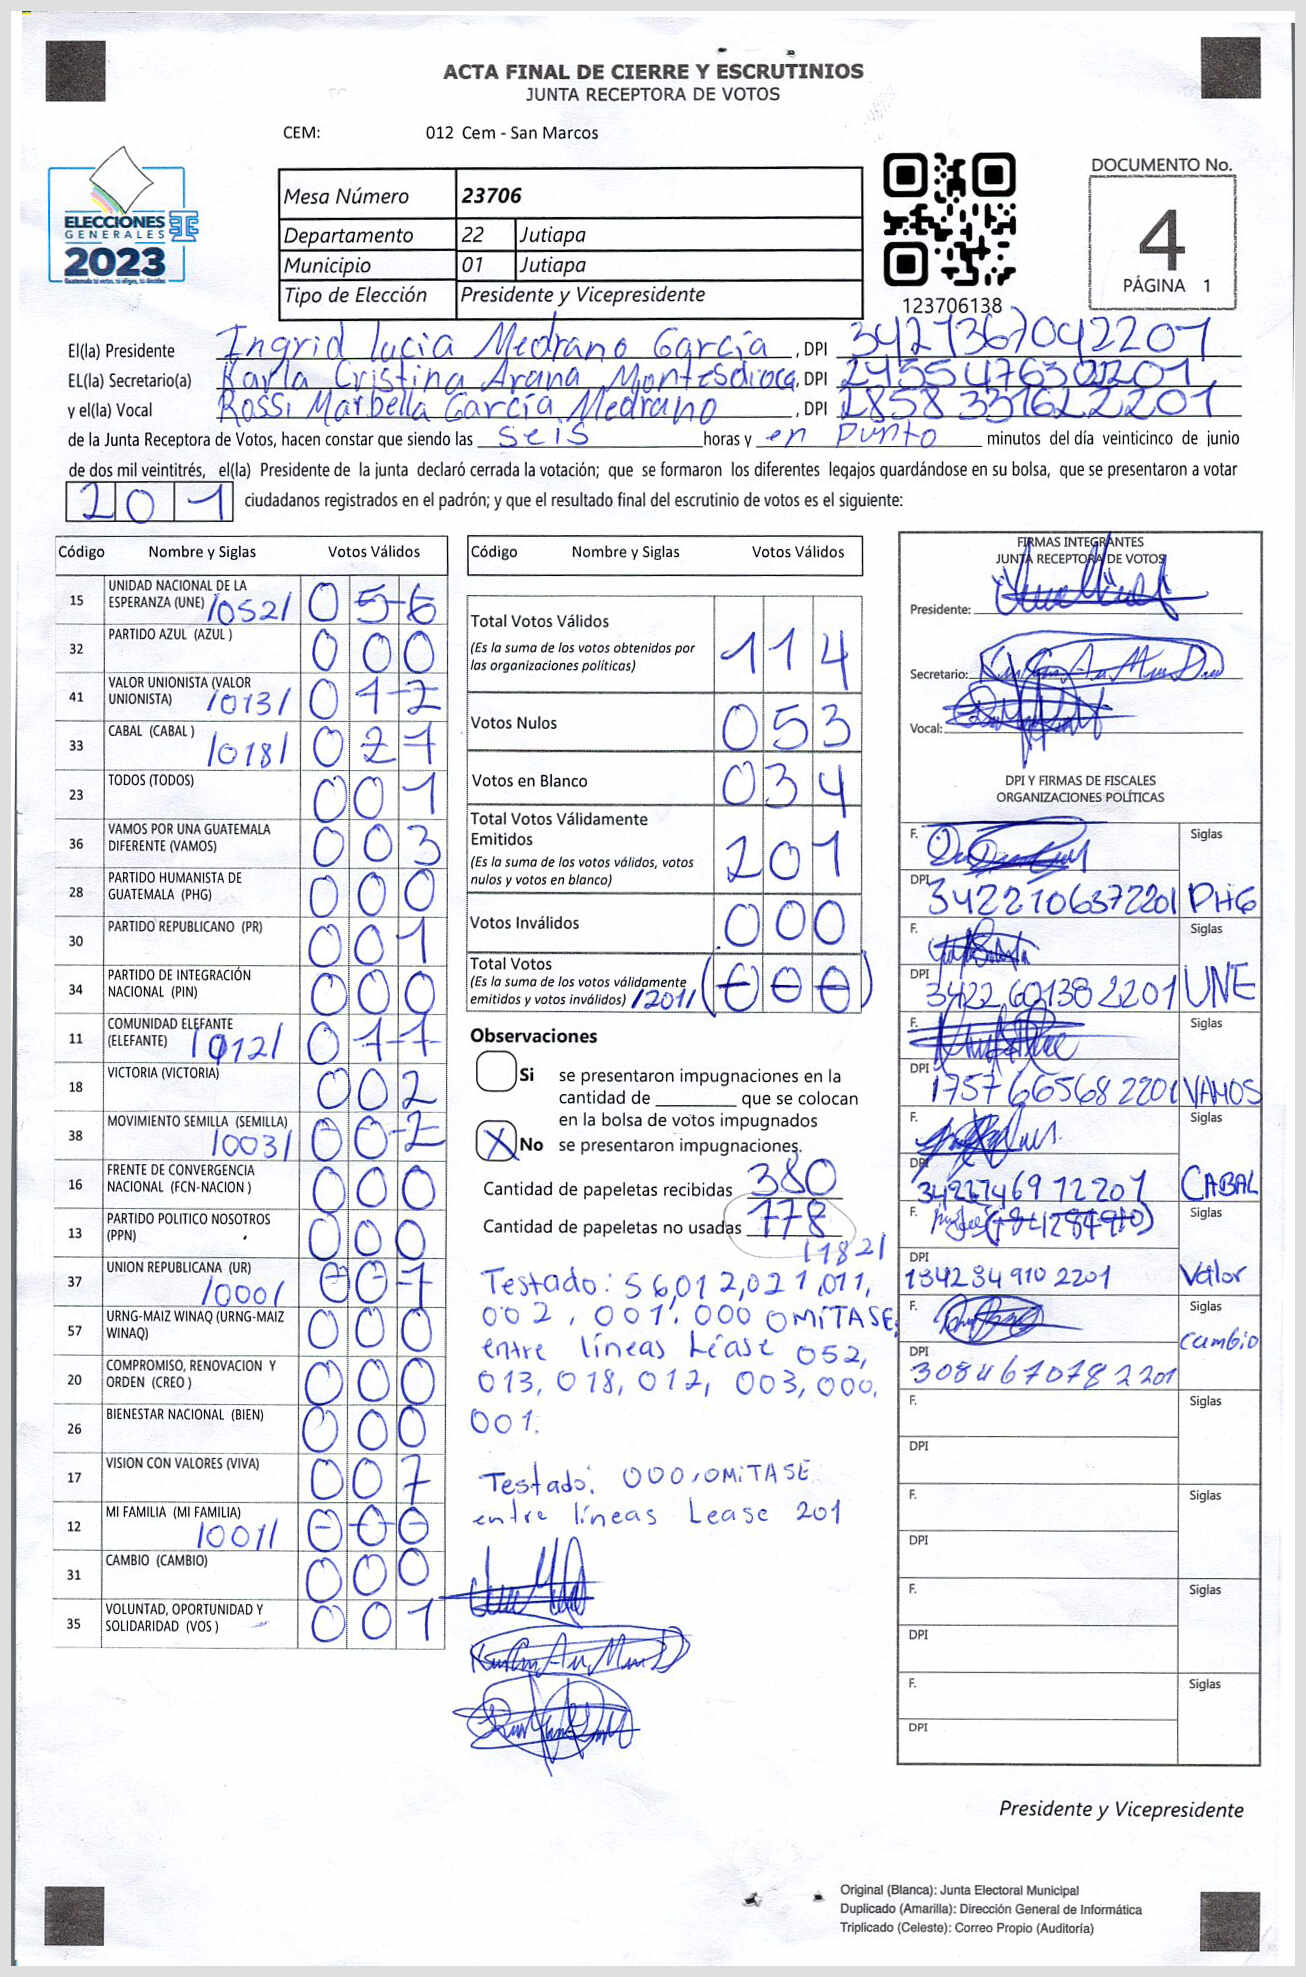 ACTA FINAL DE CIERRE Y ESCRUTINIOS
JUNTA RECEPTORA DE VOTOS
CEM: 012 Cem - San Marcos
ELECCIONES
GENERALES
2023
Mesa Número 23706
Departamento 22 Jutiapa
Municipio 01 Jutiapa
Tipo de Elección Presidente y Vicepresidente
123706138
DOCUMENTO No.
4
PÁGINA 1
El(la) Presidente Ingrid lucia Medrano García , DPI 3421736704 2201
EL(la) Secretario(a) Karla Cristina Arana Montesdioca, DPI 2455476302201
y el(la) Vocal Rossi Marbella García Medrano , DPI 1858331622201
de la Junta Receptora de Votos, hacen constar que siendo las seis horas y en punto minutos del día veinticinco de junio
de dos mil veintitrés, el(la) Presidente de la junta declaró cerrada la votación; que se formaron los diferentes legajos guardándose en su bolsa, que se presentaron a votar
201 ciudadanos registrados en el padrón; y que el resultado final del escrutinio de votos es el siguiente:
Código Nombre y Siglas Votos Válidos
15 UNIDAD NACIONAL DE LA ESPERANZA (UNE) /052/ 056
32 PARTIDO AZUL (AZUL ) 000
41 VALOR UNIONISTA (VALOR UNIONISTA) /013/ 012
33 CABAL (CABAL ) /018/ 021
23 TODOS (TODOS) 001
36 VAMOS POR UNA GUATEMALA DIFERENTE (VAMOS) 003
28 PARTIDO HUMANISTA DE GUATEMALA (PHG) 000
30 PARTIDO REPUBLICANO (PR) 001
34 PARTIDO DE INTEGRACIÓN NACIONAL (PIN) 000
11 COMUNIDAD ELEFANTE (ELEFANTE) /012/ 011
18 VICTORIA (VICTORIA) 002
38 MOVIMIENTO SEMILLA (SEMILLA) /003/ 002
16 FRENTE DE CONVERGENCIA NACIONAL (FCN-NACION ) 000
13 PARTIDO POLITICO NOSOTROS (PPN) 000
37 UNION REPUBLICANA (UR) /000/ 001
57 URNG-MAIZ WINAQ (URNG-MAIZ WINAQ) 000
20 COMPROMISO, RENOVACION Y ORDEN (CREO ) 000
26 BIENESTAR NACIONAL (BIEN) 000
17 VISION CON VALORES (VIVA) 007
12 MI FAMILIA (MI FAMILIA) /001/ 000
31 CAMBIO (CAMBIO) 000
35 VOLUNTAD, OPORTUNIDAD Y SOLIDARIDAD (VOS ) 001
Código Nombre y Siglas Votos Válidos
Total Votos Válidos 114
(Es la suma de los votos obtenidos por
las organizaciones políticas)
Votos Nulos 053
Votos en Blanco 034
Total Votos Válidamente
Emitidos 201
(Es la suma de los votos válidos, votos
nulos y votos en blanco)
Votos Inválidos 000
Total Votos
(Es la suma de los votos válidamente
emitidos y votos inválidos) /201/ (000)
Observaciones
Si se presentaron impugnaciones en la
cantidad de ________ que se colocan
en la bolsa de votos impugnados
X No se presentaron impugnaciones.
Cantidad de papeletas recibidas 380
Cantidad de papeletas no usadas 178
/182/
Testado: 56,012,021,011,
002, 001, 000 OMITASE,
entre líneas Léase 052,
013, 018, 012, 003, 000,
001.
Testado: 000, OMITASE
entre líneas Lease 201
FIRMAS INTEGRANTES
JUNTA RECEPTORA DE VOTOS
Presidente:
Secretario:
Vocal:
DPI Y FIRMAS DE FISCALES
ORGANIZACIONES POLÍTICAS
F. Siglas
DPI 3422106372201 PHG
F. Siglas
DPI 3422601382201 UNE
F. Siglas
DPI 1757665682201 VAMOS
F. Siglas
DPI 3422746972201 CABAL
F. Siglas
DPI 1342849102201 Valor
F. Siglas
DPI 3084670782201 cambio
F. Siglas
DPI
F. Siglas
DPI
F. Siglas
DPI
F. Siglas
DPI
Presidente y Vicepresidente
Original (Blanca): Junta Electoral Municipal
Duplicado (Amarilla): Dirección General de Informática
Triplicado (Celeste): Correo Propio (Auditoría)